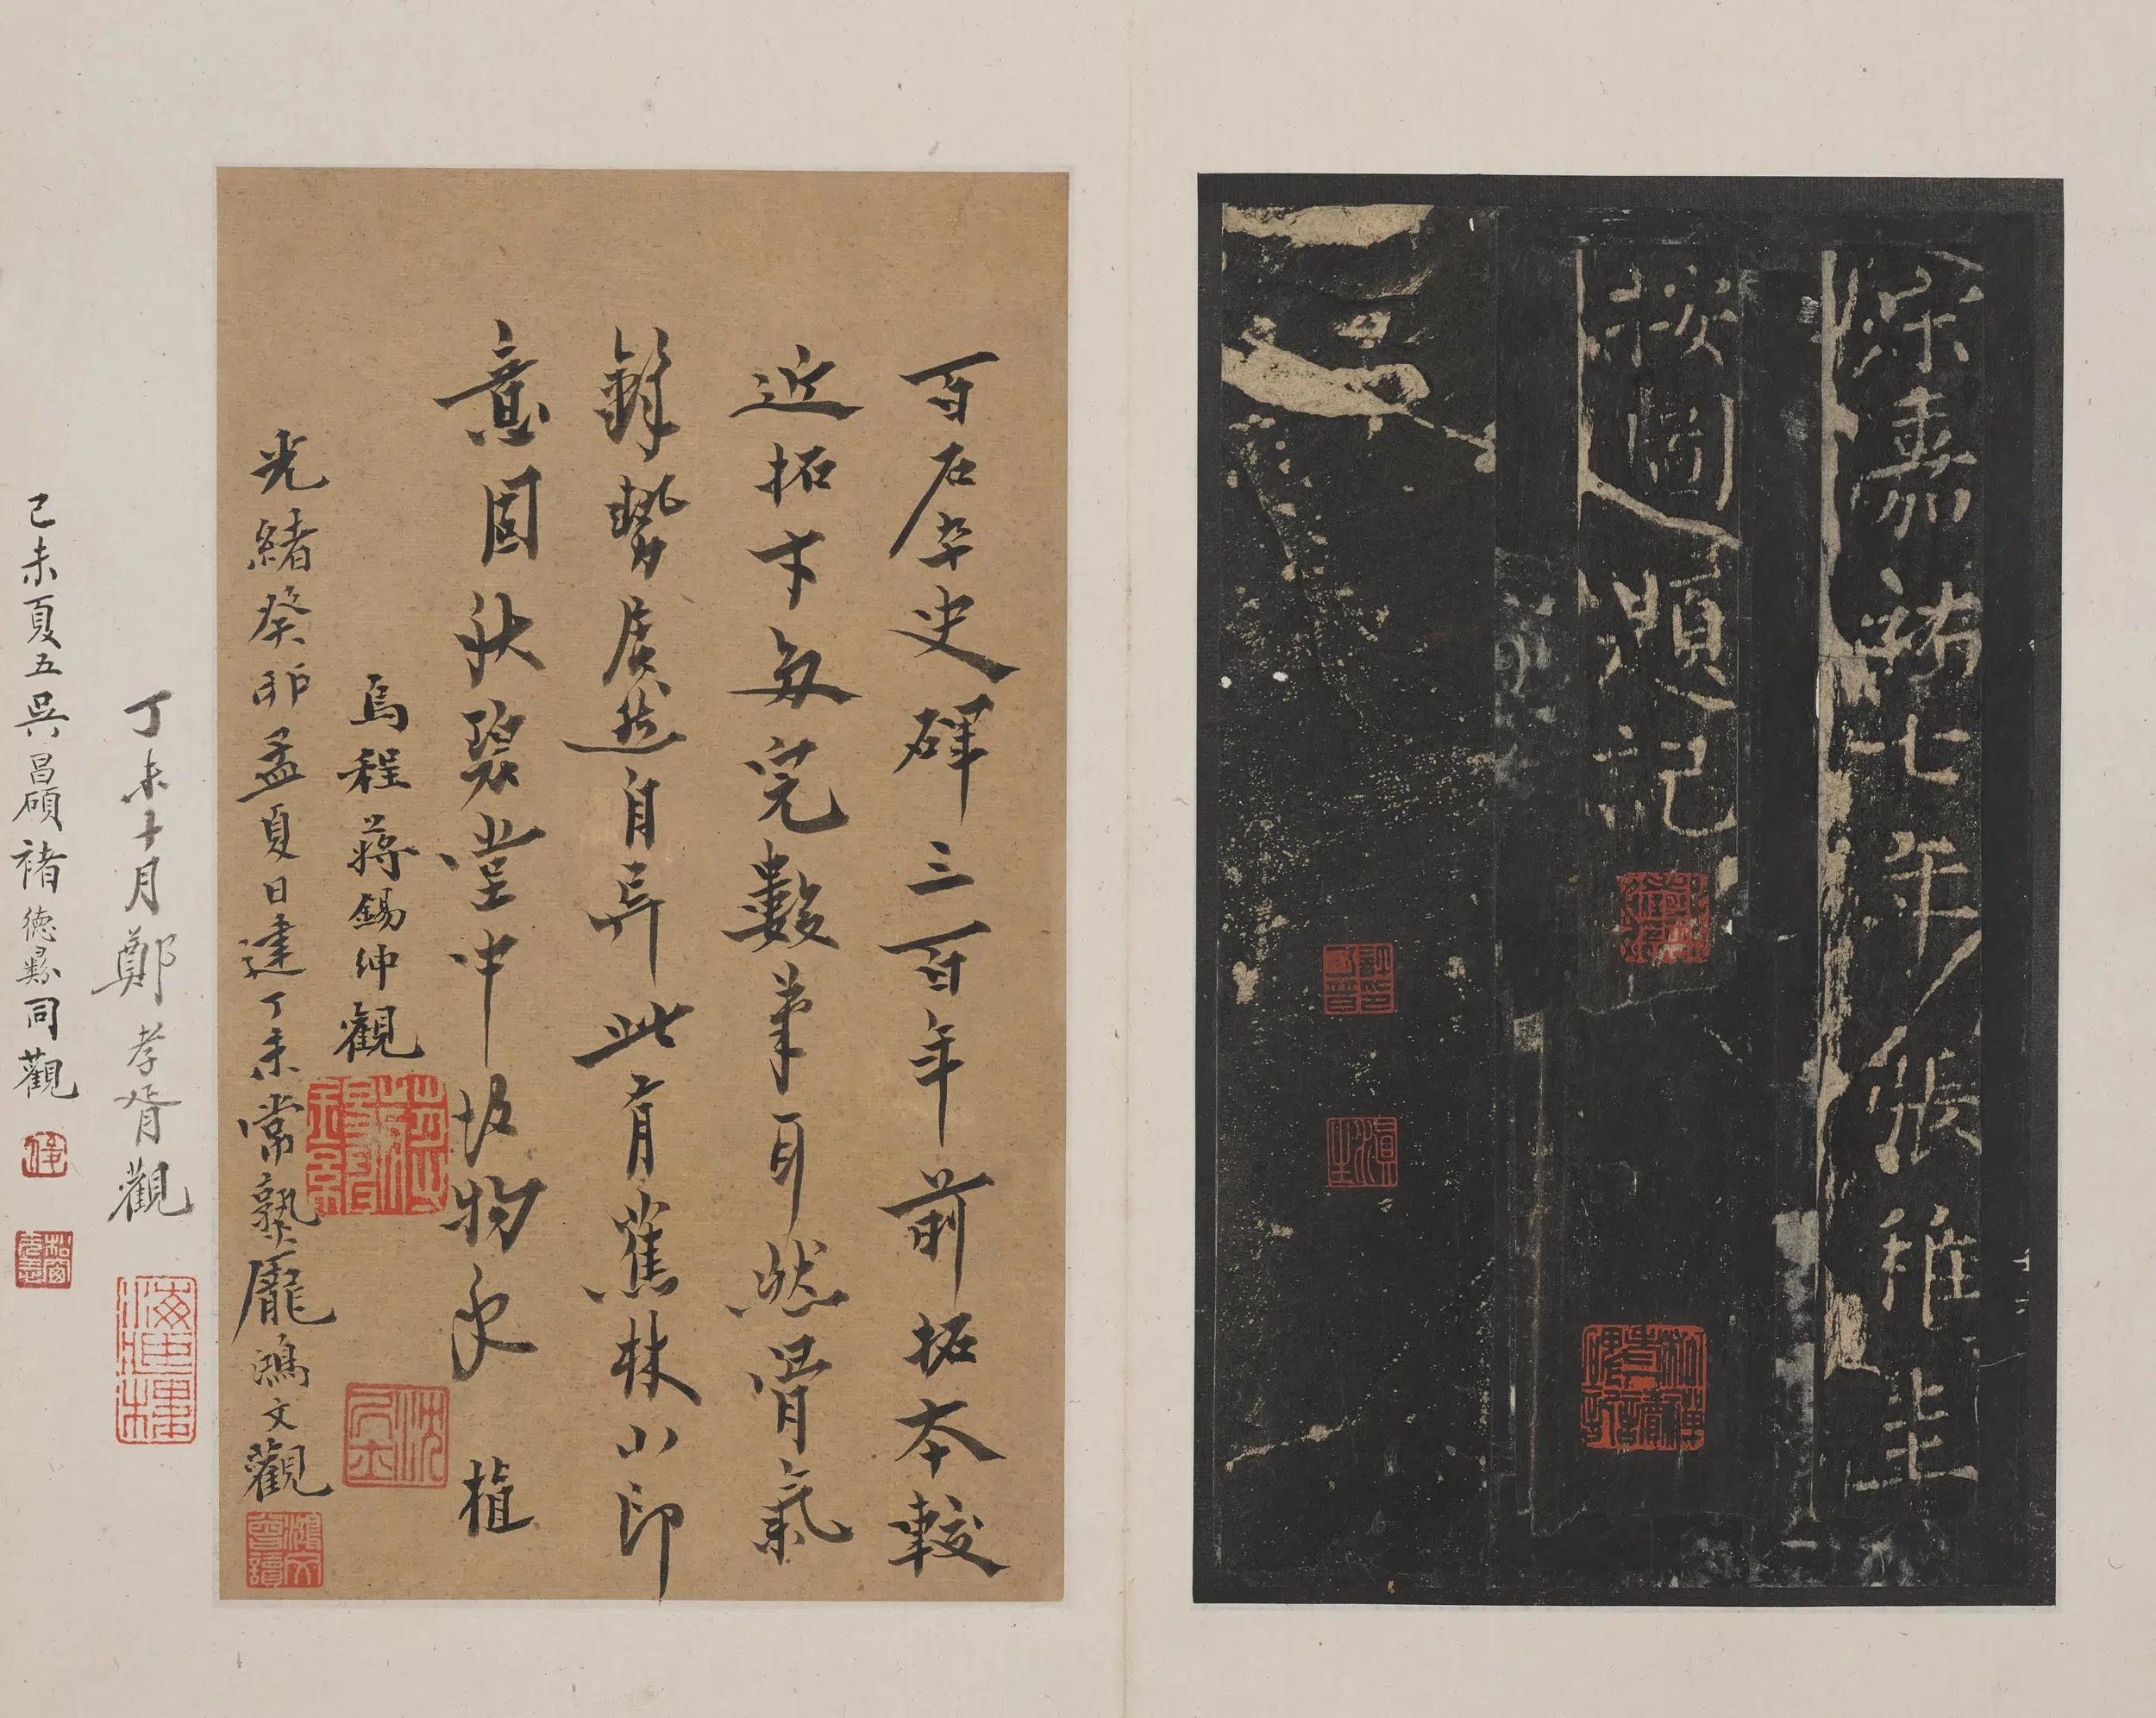 宋嘉祐七年張稚圭
按圖題記
滇生
百石卒史碑三百年前拓本較
近拓才多完數筆耳然骨氣
鋒勢然自异此有蕉林小印
意固秋碧堂中物 植
烏程蔣錫紳觀
光緒癸卯孟夏日逮丁未常熟龐鴻文觀
鴻文曾讀
丁未十月鄭孝胥觀
海藏樓
己未夏五吳昌碩褚德彝同觀